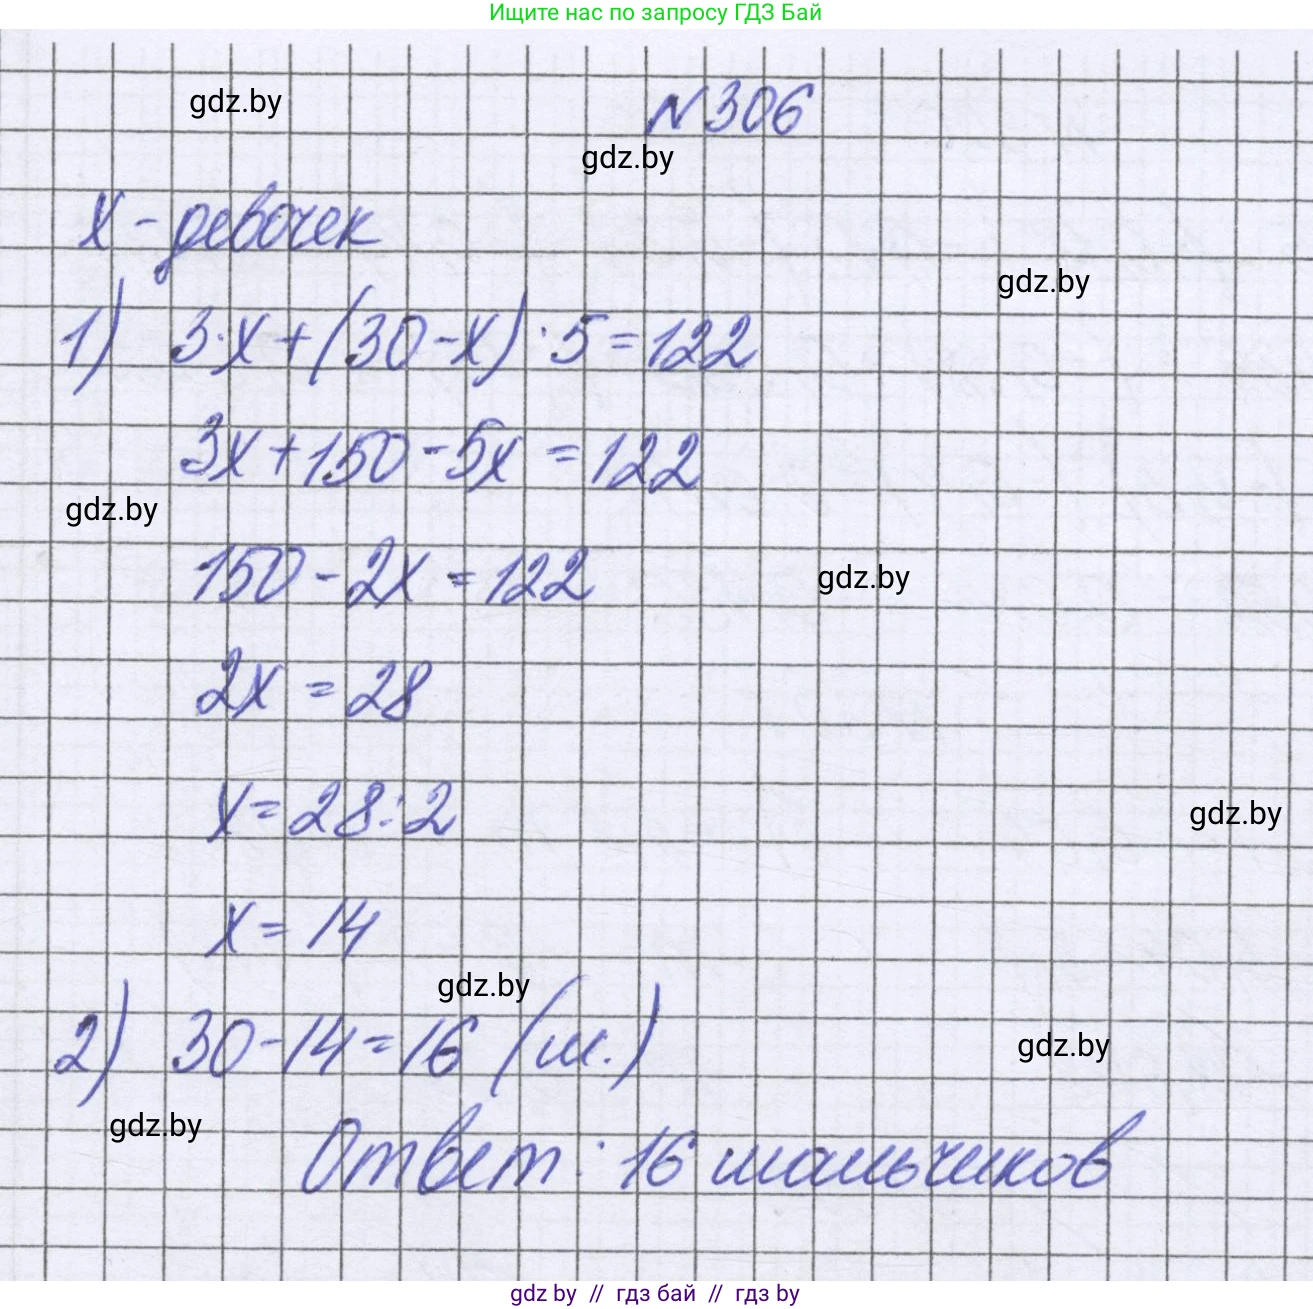 Ищите нас по запросу ГДЗ Бай
gdz.by
N 306
gdz.by
x - девочек
gdz.by
1) 3·x+(30-x)·5=122
3x+150-5x=122
gdz.by
150-2x=122
gdz.by
2x=28
x=28:2
gdz.by
x=14
gdz.by
2) 30-14=16 (м.)
gdz.by
gdz.by
Ответ: 16 мальчиков
gdz by // гдз бай // гдз by